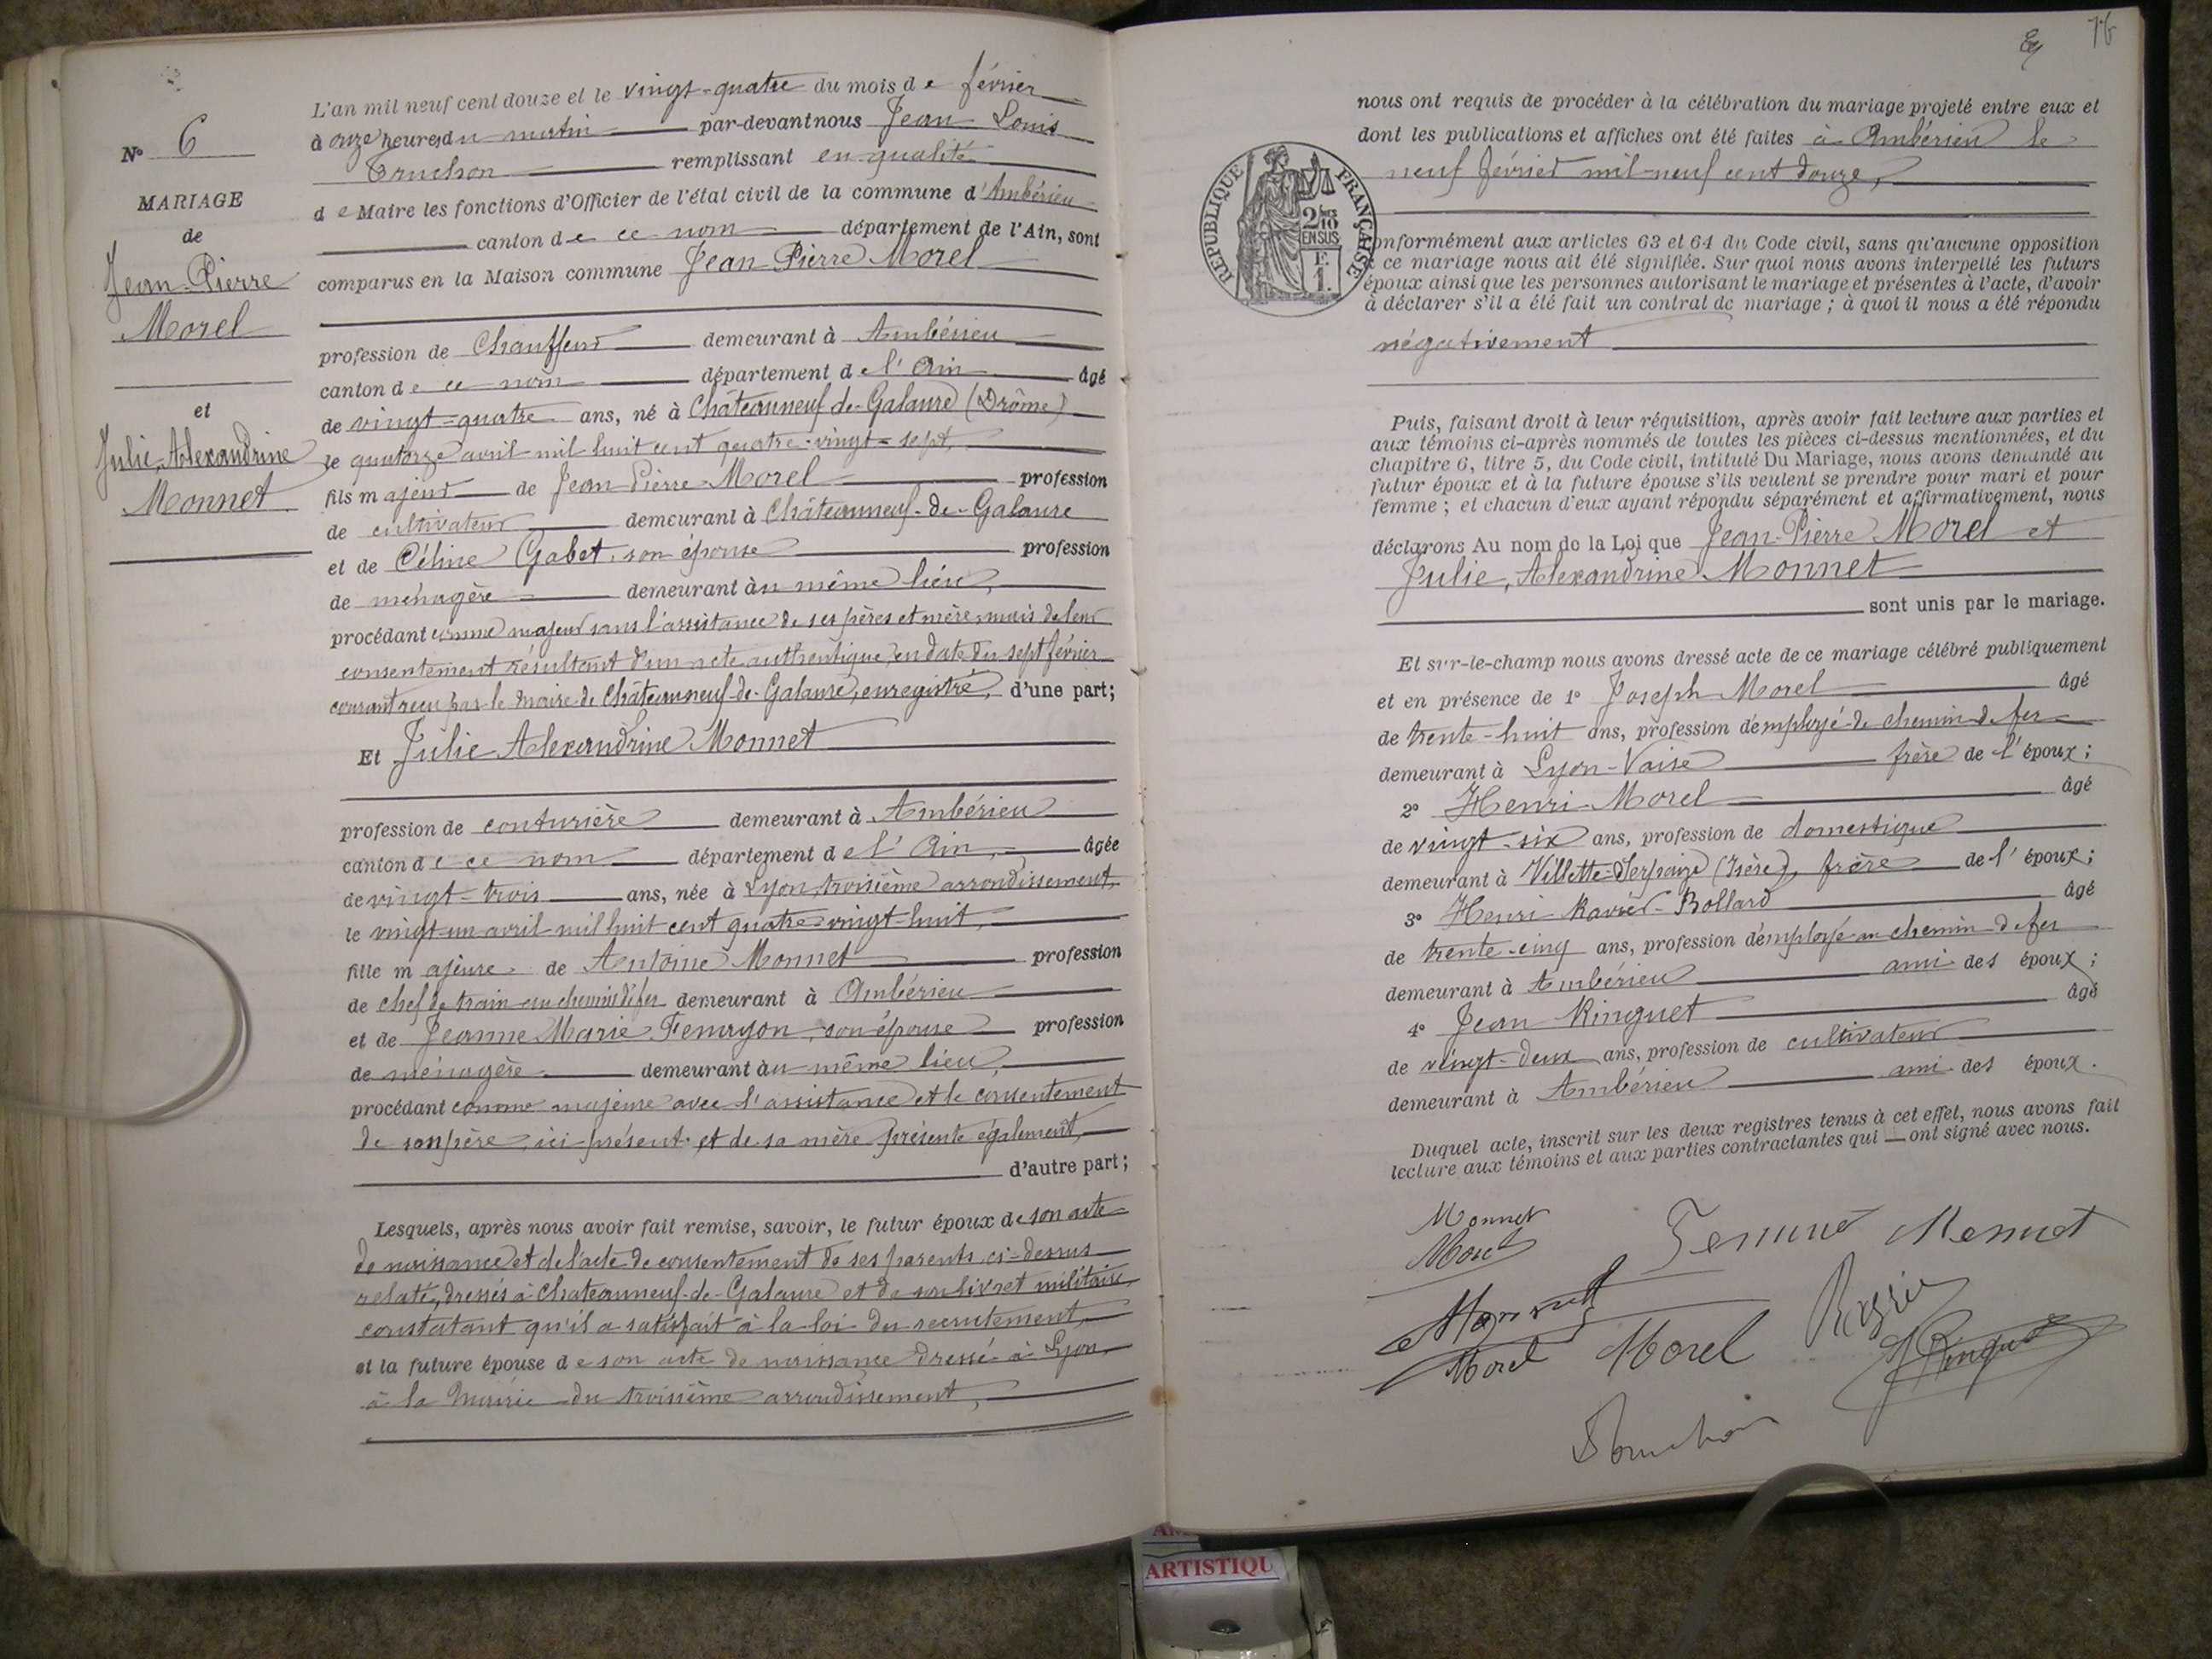 N° 6
MARIAGE
de
Jean-Pierre
Morel
et
Julie, Alexandrine
Monnet
L'an mil neuf cent douze et le vingt-quatre du mois de février
à onze heures du matin par-devant nous Jean Louis
Truchon remplissant en qualité
de Maire les fonctions d'Officier de l'état civil de la commune d'Ambérieu
canton de ce nom département de l'Ain, sont
comparus en la Maison commune Jean Pierre Morel
profession de Chauffeur demeurant à Ambérieu
canton de ce nom département de l'Ain âgé
de vingt-quatre ans, né à Châteauneuf-de-Galaure (Drôme)
le quatorze avril mil huit cent quatre-vingt-sept,
fils majeur de Jean Pierre Morel profession
de cultivateur demeurant à Châteauneuf-de-Galaure
et de Céline Gabet, son épouse profession
de ménagère demeurant au même lieu,
procédant comme majeur sans l'assistance de ses pères et mère, mais de leur
consentement résultant d'un acte authentique, en date du sept février
courant reçu par le maire de Châteauneuf-de-Galaure, enregistré, d'une part;
Et Julie Alexandrine Monnet
profession de couturière demeurant à Ambérieu
canton de ce nom département de l'Ain, âgée
de vingt-trois ans, née à Lyon, troisième arrondissement,
le vingt-un avril mil huit cent quatre-vingt-huit,
fille majeure de Antoine Monnet profession
de chef de train au chemin de fer demeurant à Ambérieu
et de Jeanne Marie, son épouse profession
de ménagère demeurant au même lieu,
procédant comme majeure avec l'assistance et le consentement
de son père, ici présent et de sa mère présente également,
d'autre part;
Lesquels, après nous avoir fait remise, savoir, le futur époux de son acte
de naissance et de l'acte de consentement de ses parents ci-dessus
relaté, dressés à Chateauneuf-de-Galaure et de son livret militaire
constatant qu'il a satisfait à la loi du recrutement,
et la future épouse de son acte de naissance dressé à Lyon,
à la Mairie du troisième arrondissement,
76
nous ont requis de procéder à la célébration du mariage projeté entre eux et
dont les publications et affiches ont été faites à Ambérieu le
neuf février mil-neuf cent douze,
RÉPUBLIQUE FRANÇAISE
2/10 EN SUS
F. 1.
onformément aux articles 63 et 64 du Code civil, sans qu'aucune opposition
ce mariage nous ait été signifiée. Sur quoi nous avons interpellé les futurs
époux ainsi que les personnes autorisant le mariage et présentes à l'acte, d'avoir
à déclarer s'il a été fait un contrat de mariage ; à quoi il nous a été répondu
négativement
Puis, faisant droit à leur réquisition, après avoir fait lecture aux parties et
aux témoins ci-après nommés de toutes les pièces ci-dessus mentionnées, et du
chapitre 6, titre 5, du Code civil, intitulé Du Mariage, nous avons demandé au
futur époux et à la future épouse s'ils veulent se prendre pour mari et pour
femme ; et chacun d'eux ayant répondu séparément et affirmativement, nous
déclarons Au nom de la Loi que Jean-Pierre Morel et
Julie, Alexandrine Monnet
sont unis par le mariage.
Et sur-le-champ nous avons dressé acte de ce mariage célébré publiquement
et en présence de 1° Joseph Morel âgé
de trente-huit ans, profession d'employé de chemin de fer
demeurant à Lyon-Vaise frère de l'époux ;
2° Henri Morel âgé
de vingt-six ans, profession de domestique
demeurant à Villette-Serpaize (Isère), frère de l'époux ;
3° Henri Bollard âgé
de trente-cinq ans, profession d'employé au chemin de fer
demeurant à Ambérieu ami des époux ;
4° Jean Ringuet âgé
de vingt-deux ans, profession de cultivateur
demeurant à Ambérieu ami des époux.
Duquel acte, inscrit sur les deux registres tenus à cet effet, nous avons fait
lecture aux témoins et aux parties contractantes qui ont signé avec nous.
Monnet
Morel
Femme Monnet
Monnet
Morel Morel
Ringuet
Truchon
ARTISTIQU